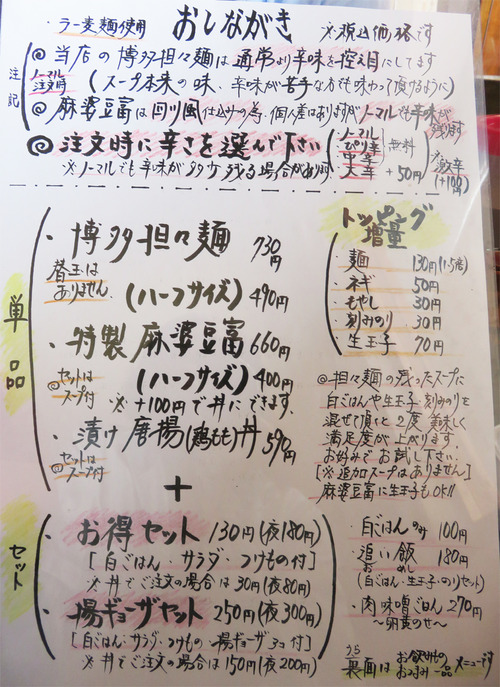 ・ラー麦麺使用
おしながき
※税込価格です
注記
◎当店の博多担々麺は通常より辛味を控え目にしてます
ノーマル注文時
(スープ本来の味、辛味が苦手な方も味わって頂けるように)
◎麻婆豆腐は四川風仕込みの為、個人差はありますがノーマルでも辛味が残ります
◎注文時に辛さを選んで下さい
ノーマル
ぴり辛
無料
中辛
大辛 +50円
※激辛(+100円)
※ノーマルでも辛味が多少残る場合があり〼
単品
・博多担々麺 730円
替玉はありません
(ハーフサイズ) 490円
・特製麻婆豆富 660円
◎セットはスープ付
(ハーフサイズ) 400円
※+100円で丼にできます。
・漬け唐揚(鶏もも)丼 590円
◎セットはスープ付
+
セット
・お得セット 130円(夜180円)
[白ごはん・サラダ・つけもの付]
※丼でご注文の場合は30円(夜80円)
・揚ギョーザセット 250円(夜300円)
[白ごはん・サラダ・つけもの・揚ギョーザ3コ付]
※丼でご注文の場合は150円(夜200円)
トッピング増量
・麺 130円(1.5倍)
・ネギ 50円
・もやし 30円
・刻みのり 30円
・生玉子 70円
◎担々麺の残ったスープに
白ごはんや生玉子、刻みのりを
混ぜて頂くと2度美味しく
満足度が上がります。
お好みでお試し下さい。
[※追加スープはありません]
麻婆豆富に生玉子もOK!!
・白ごはんのみ 100円
・追い飯 180円
おめし
(白ごはん・生玉子・のりセット)
・肉味噌ごはん 270円
〜卵黄のせ〜
うら
裏面はお飲みものおつまみ一品メニューです